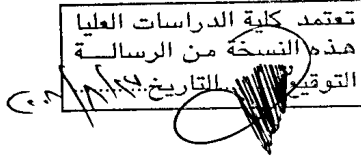 تعتمد كلية الدراسات العليا
هذه النسخة من الرسالـــة
التوقيع.......التاريخ........